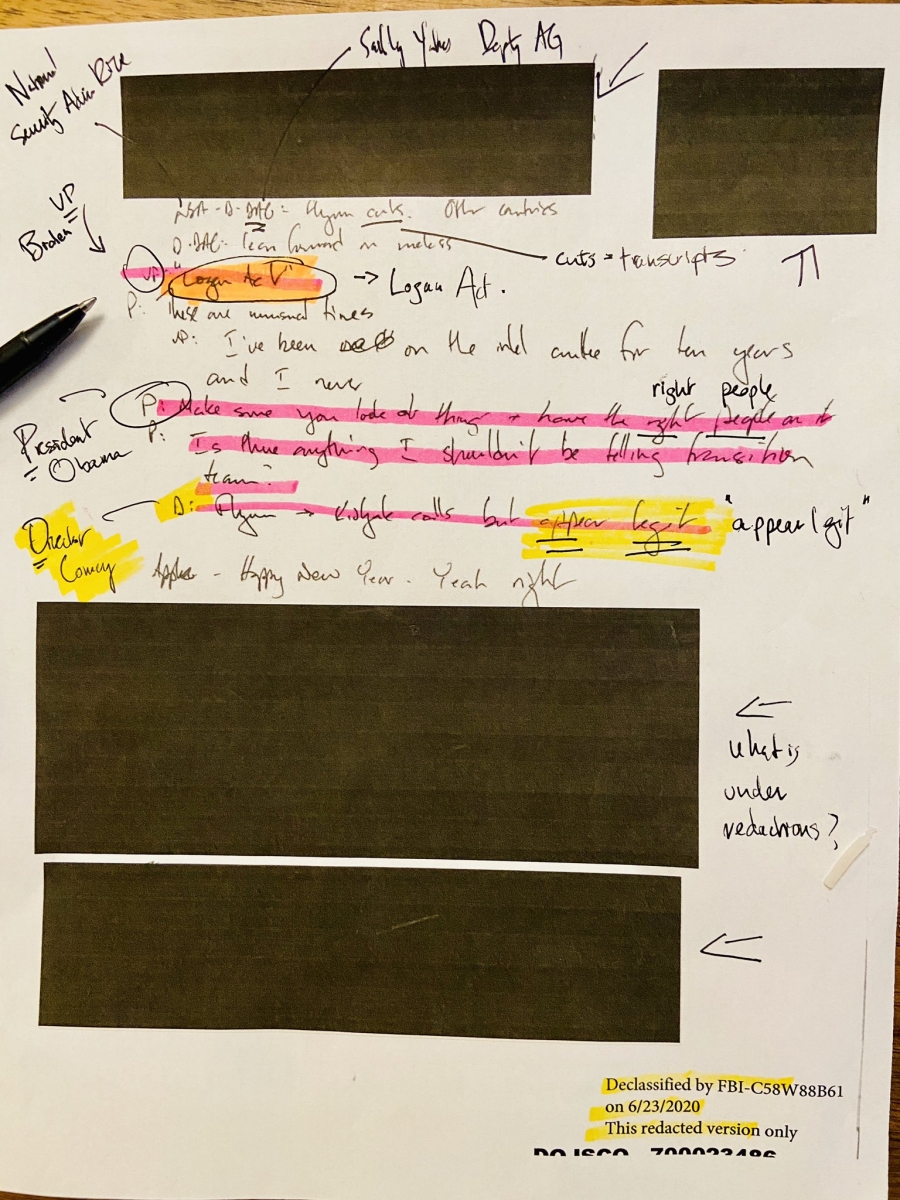 Sally Yates Depty AG
National
Security Advis Rice
VP
Broden
NSA-D-DAG = Flynn cuts. Other countries
D-DAG: lean forward on unclass
cuts = transcripts
VP: "Logan Act" → Logan Act.
P: These are unusual times
VP: I've been on the intel cmttee for ten years
and I never
right people
P: Make sure you look at things + have the right people on it
President
Obama
P: Is there anything I shouldn't be telling transition
team?
D: Flynn → Kislyak calls but appear legit "appear legit"
Director
Comey
Happy New Year. Yeah right
What is
under
redactions?
Declassified by FBI-C58W88B61
on 6/23/2020
This redacted version only
DOJSCO - 700023486